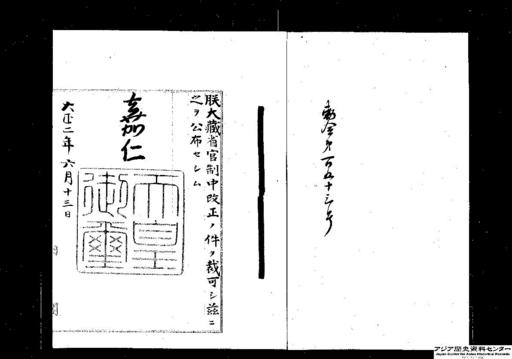 勅令第百五十三号
朕大藏省官制中改正ノ件ヲ裁可シ茲ニ
之ヲ公布セシム
嘉仁
天皇御璽
大正二年六月十三日
アジア歴史資料センター
Japan Center for Asian Historical Records